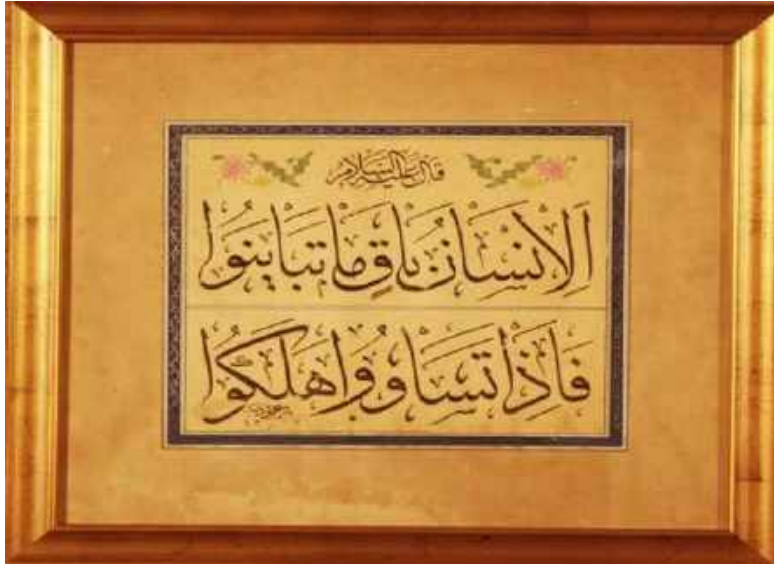 قال عليه السلام
اَلْاِنْسَانُ بَاقٍ مَا تَبَايَنُوا
فَاِذَا تَسَاوُوا هَلَكُوا